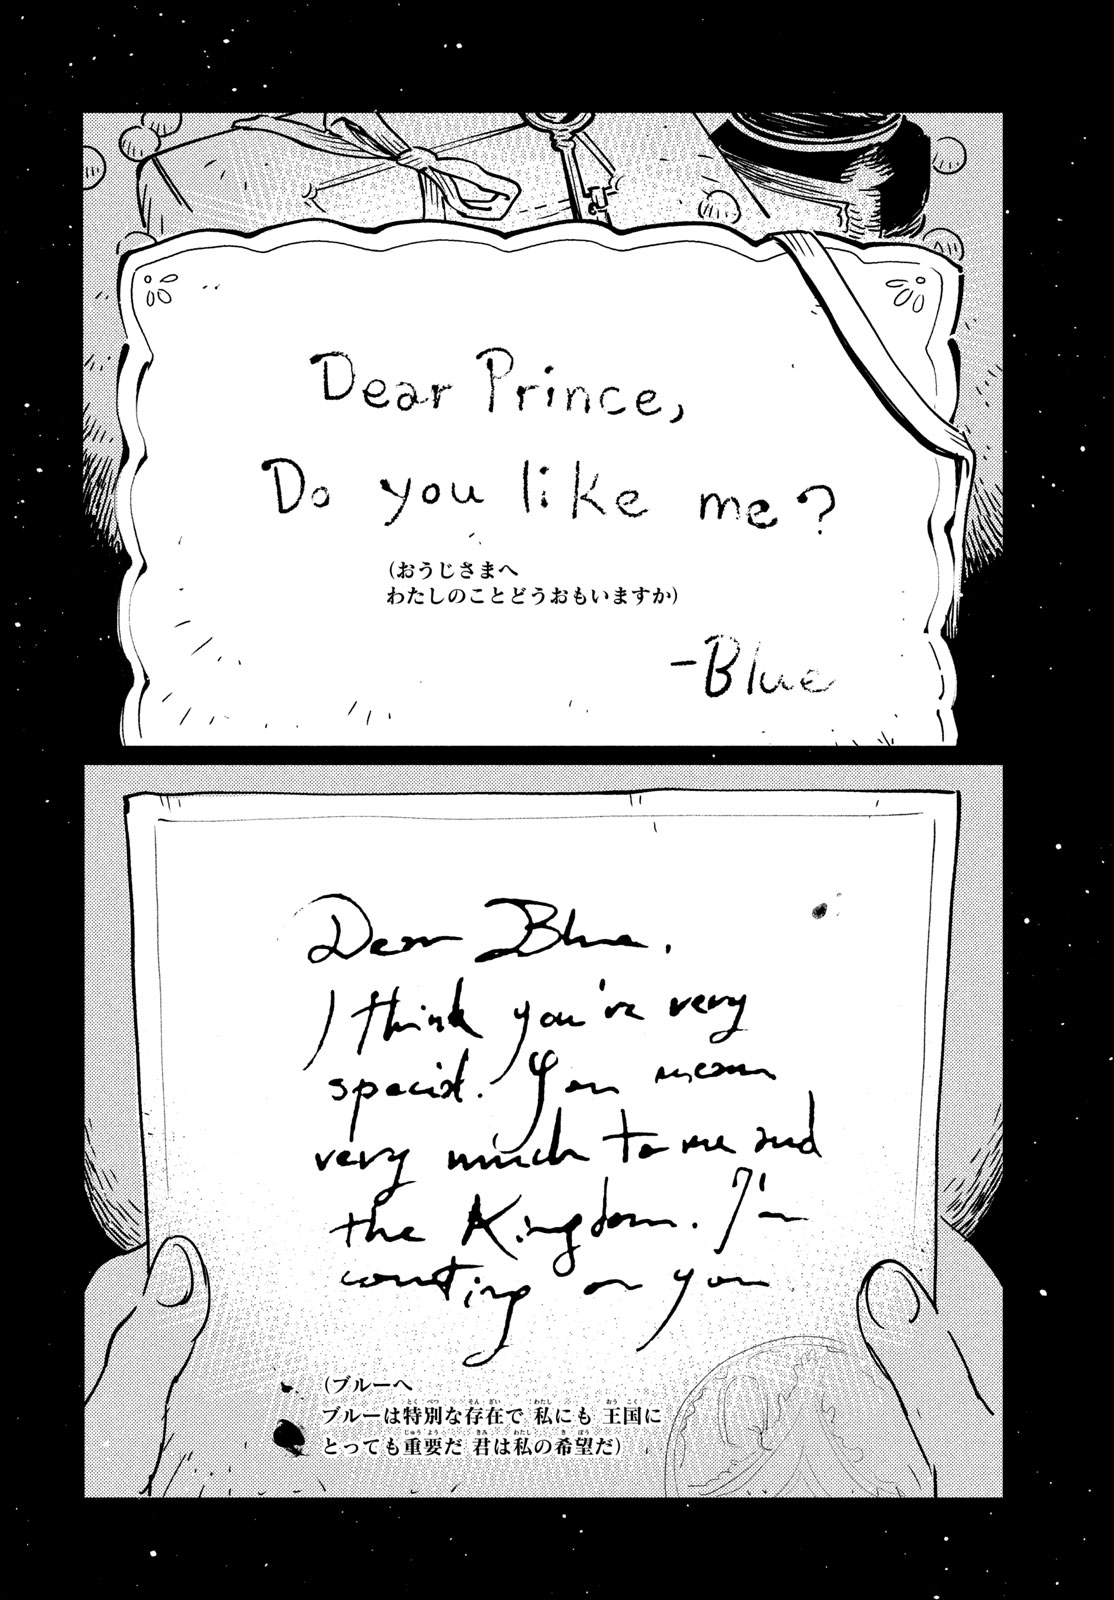 Dear Prince,
Do you like me?
(おうじさまへ
わたしのことどうおもいますか)
-Blue
Dear Blue.
I think you're very
special. You mean
very much to me and
the Kingdom. I'm
counting on you
(ブルーへ
ブルーは特別な存在で 私にも 王国に
とっても重要だ 君は私の希望だ)